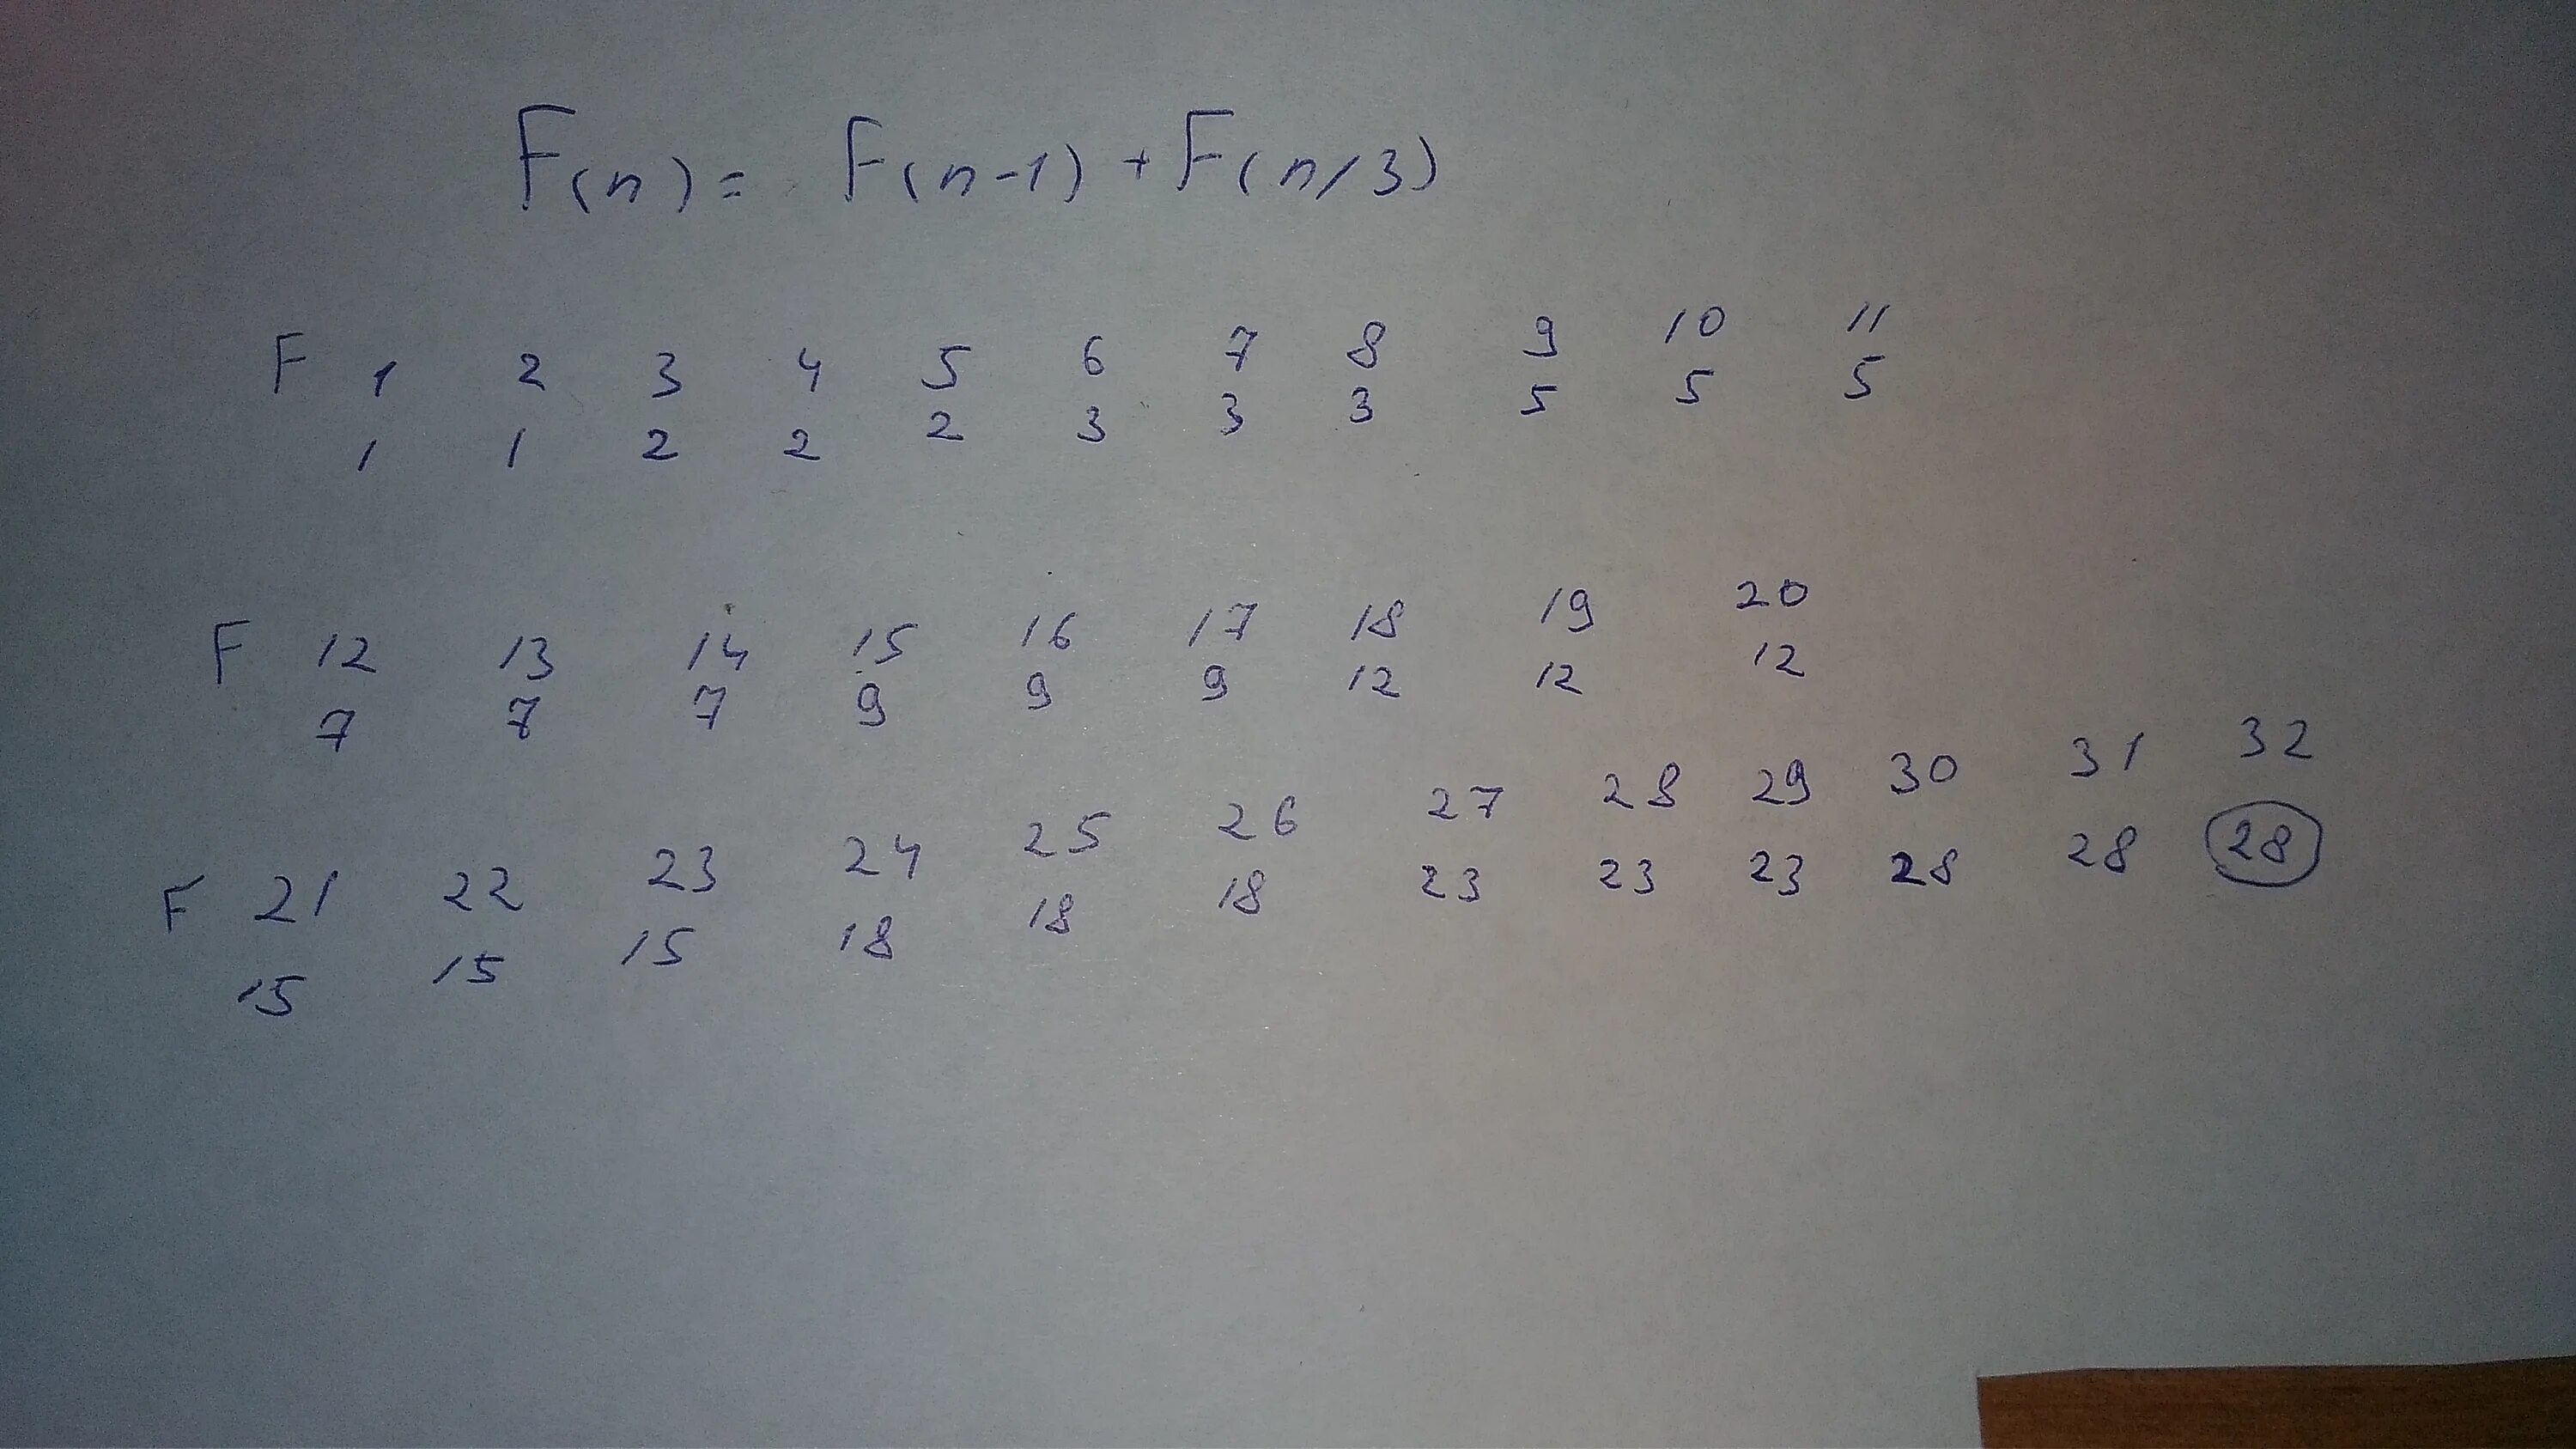 F(n) = F(n-1) + F(n/3)
F 1 2 3 4 5 6 7 8 9 10 11
1 1 2 2 2 3 3 3 5 5 5
F 12 13 14 15 16 17 18 19 20
7 7 7 9 9 9 12 12 12
F 21 22 23 24 25 26 27 28 29 30 31 32
15 15 15 18 18 18 23 23 23 28 28 28